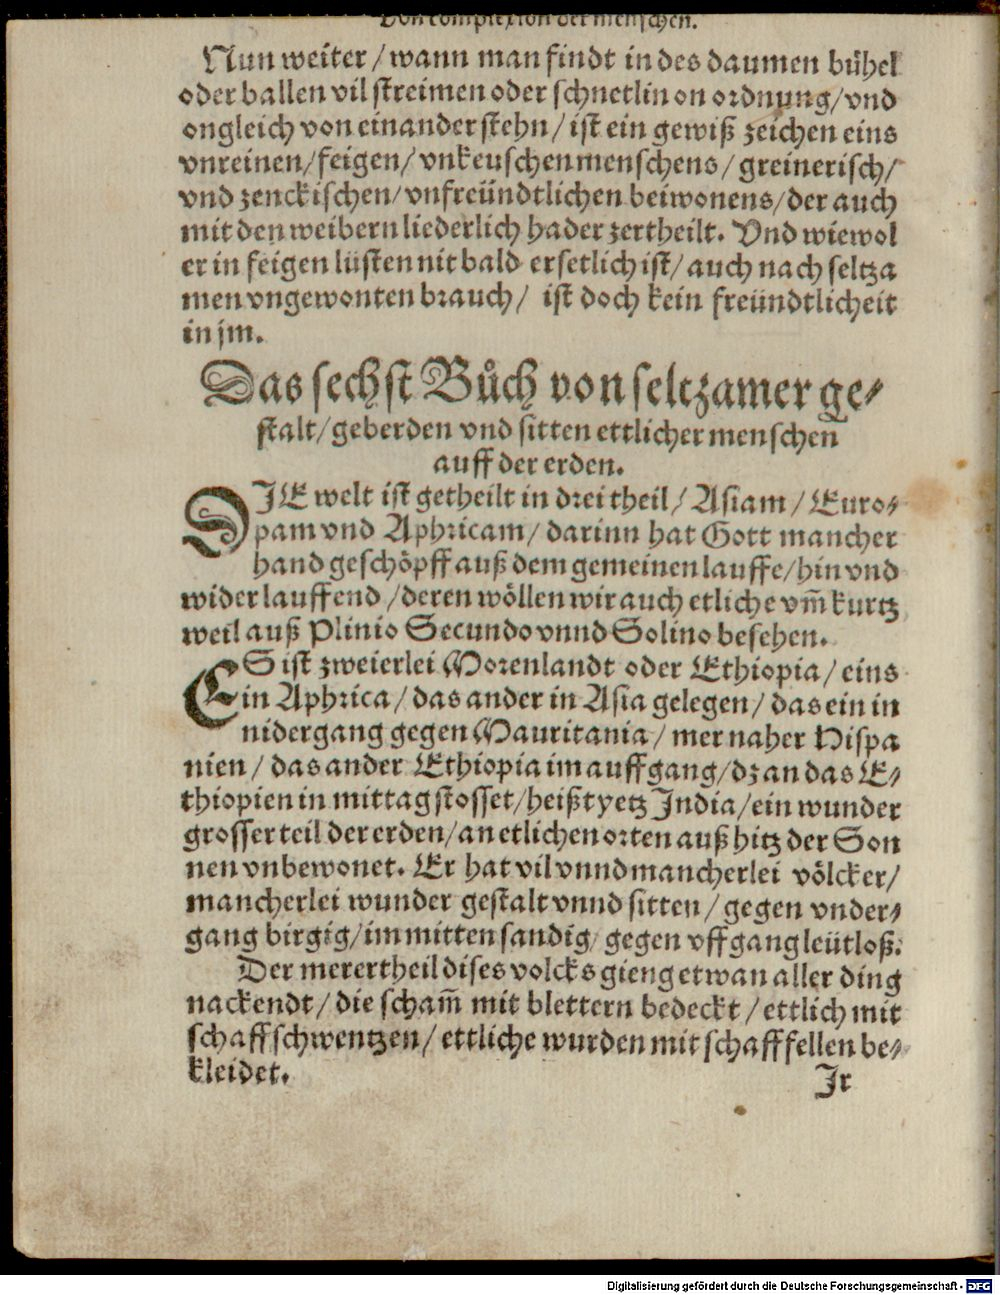 Von complexion der menschen.
Nun weiter / wann man findt in des daumen bühel
oder ballen vil streimen oder schnetlin on ordnung / vnd
ongleich von einander stehn / ist ein gewiß zeichen eins
vnreinen / feigen / vnkeuschen menschens / greinerisch /
vnd zenckischen / vnfreündtlichen beiwonens / der auch
mit den weibern liederlich hader zertheilt. Vnd wiewol
er in feigen lüsten nit bald ersetlich ist / auch nach seltza
men vngewonten brauch / ist doch kein freündtlicheit
in jm.
Das sechst Bůch von seltzamer ge⸗
stalt / geberden vnd sitten ettlicher menschen
auff der erden.
DJE welt ist getheilt in drei theil / Asiam / Euro⸗
pam vnd Aphricam / darinn hat Gott mancher
hand geschöpff auß dem gemeinen lauffe / hin vnd
wider lauffend / deren wöllen wir auch etliche vm̃ kurtz
weil auß Plinio Secundo vnnd Solino besehen.
ES ist zweierlei Morenlandt oder Ethiopia / eins
in Aphrica / das ander in Asia gelegen / das ein in
nidergang gegen Mauritania / mer naher Hispa
nien / das ander Ethiopia im auffgang / dz an das E⸗
thiopien in mittag stosset / heißt yetz Jndia / ein wunder
grosser teil der erden / an etlichen orten auß hitz der Son
nen vnbewonet. Er hat vil vnnd mancherlei völcker /
mancherlei wunder gestalt vnnd sitten / gegen vnder⸗
gang birgig / im mitten sandig / gegen vffgang leütloß.
Der merertheil dises volcks gieng etwan aller ding
nackendt / die scham̃ mit blettern bedeckt / ettlich mit
schaffschwentzen / ettliche wurden mit schaffellen be⸗
kleidet.
Jr
Digitalisierung gefördert durch die Deutsche Forschungsgemeinschaft - DFG